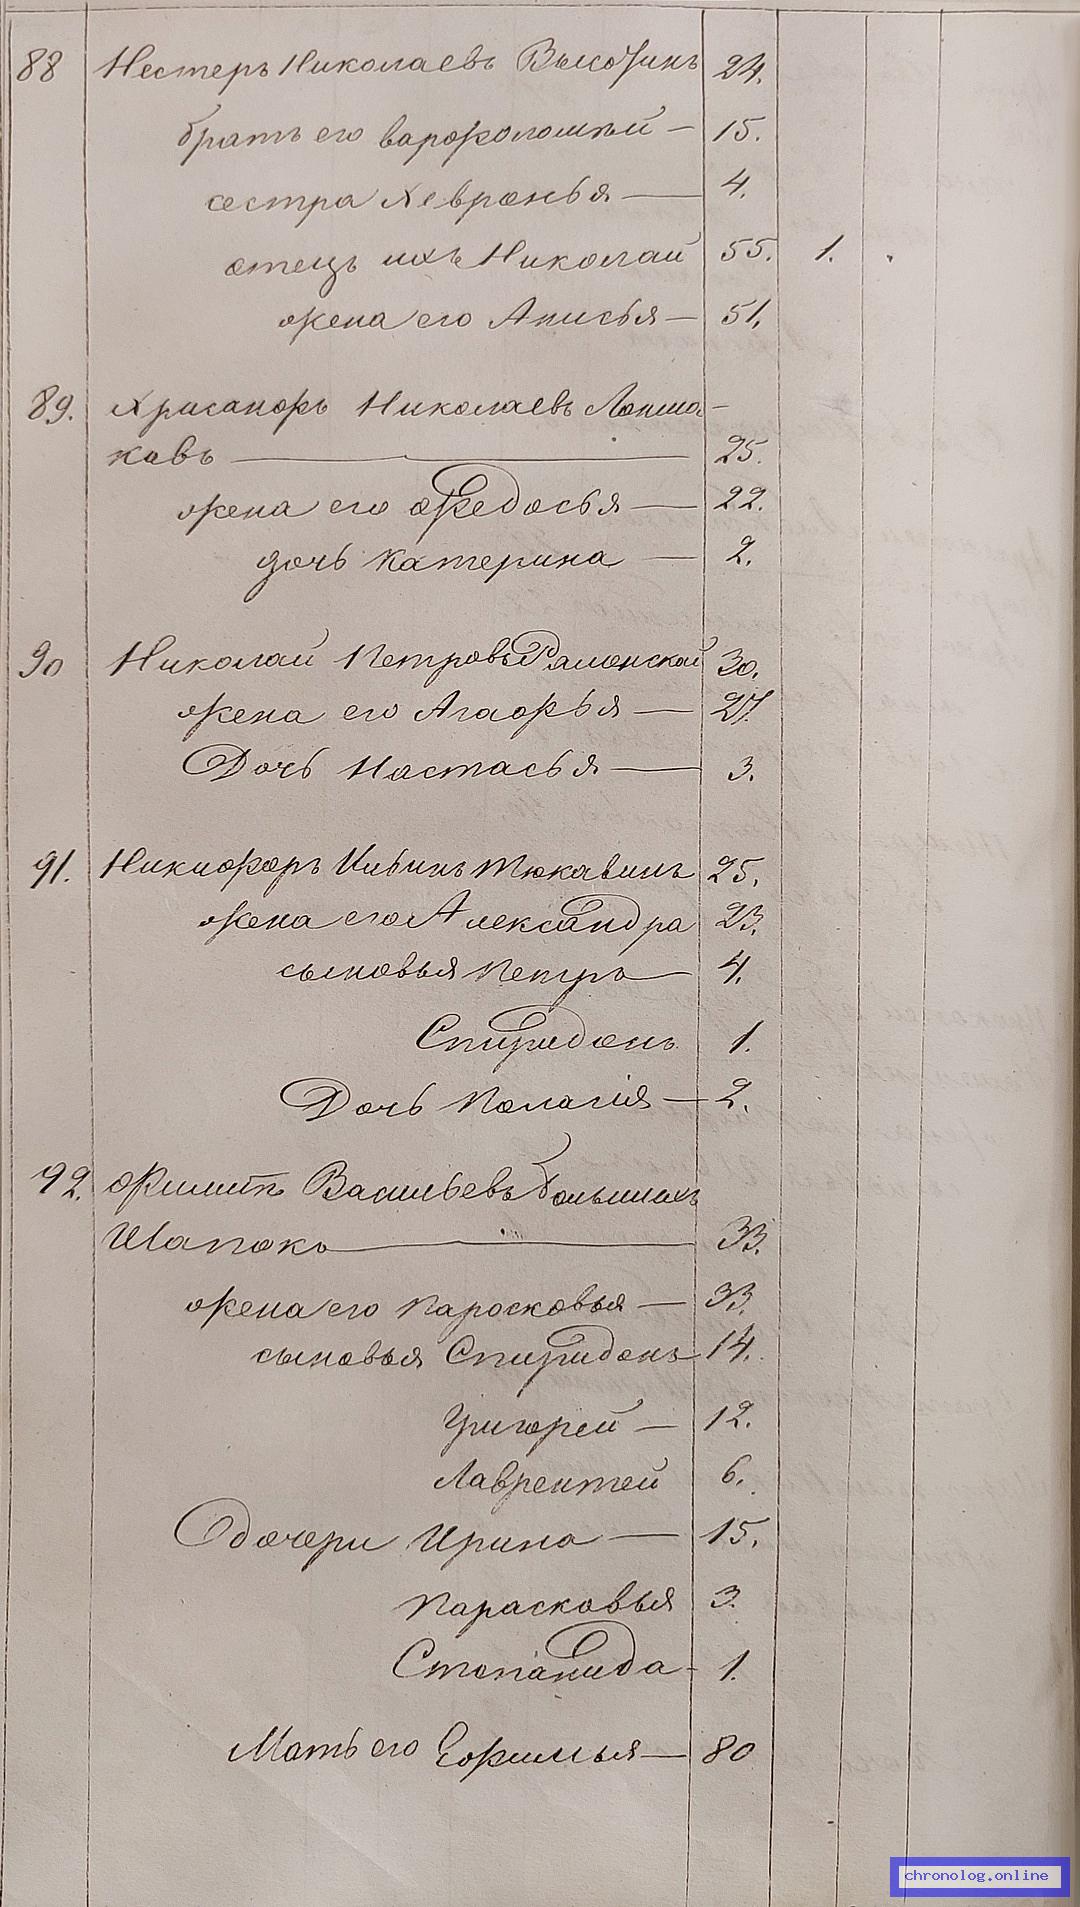 88 Нестеръ Николаевъ Высотинъ 24.
братъ его варфоломѣй — 15.
сестра Хевронья — 4.
отецъ ихъ Николай 55. 1.
жена его Анисья — 51.
89. Хрисанфъ Николаевъ Лопша-
ковъ — 25.
жена его Федосья — 22.
дочь Катерина — 2.
90 Николай Петровъ Раменской 30.
жена его Агафья — 27.
Дочь Настасья — 3.
91. Никифоръ Ильинъ Тюкавинъ 25.
жена его Александра 23.
сыновья Петръ — 4.
Спиридонъ 1.
Дочь Полагія — 2.
92. Филипъ Васильевъ большихъ
Шапокъ — 33.
жена его Паросковья — 33.
сыновья Спиридонъ — 14.
Григорей — 12.
Лаврентей 6.
дочери Ирина — 15.
Парасковья 3.
Степанида - 1.
Мать его Ефимья — 80
chronolog.online